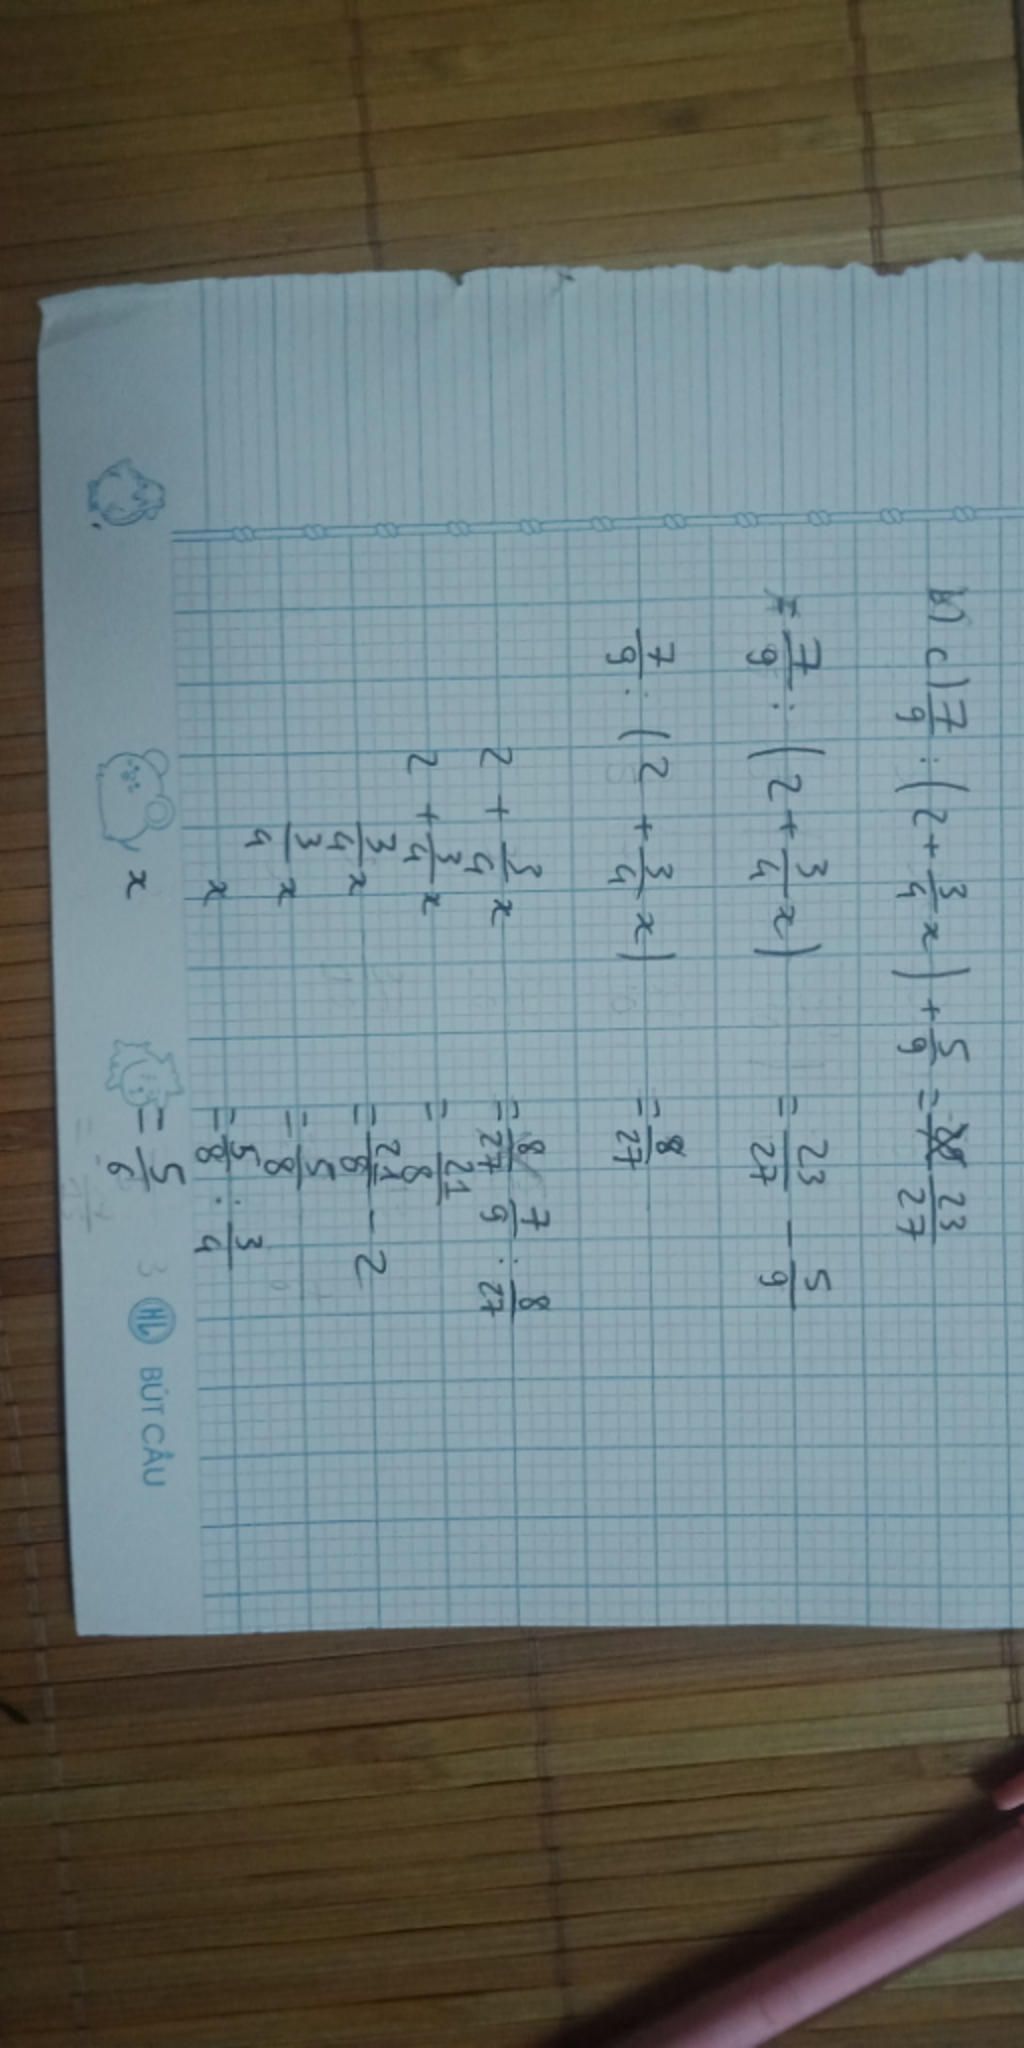 c) 7/9 : (2 + 3/4 x) + 5/9 = 23/27
7/9 : (2 + 3/4 x) = 23/27 - 5/9
7/9 : (2 + 3/4 x) = 8/27
2 + 3/4 x = 7/9 : 8/27
2 + 3/4 x = 21/8
3/4 x = 21/8 - 2
3/4 x = 5/8
x = 5/8 : 3/4
x = 5/6
HL BÚT CÂU